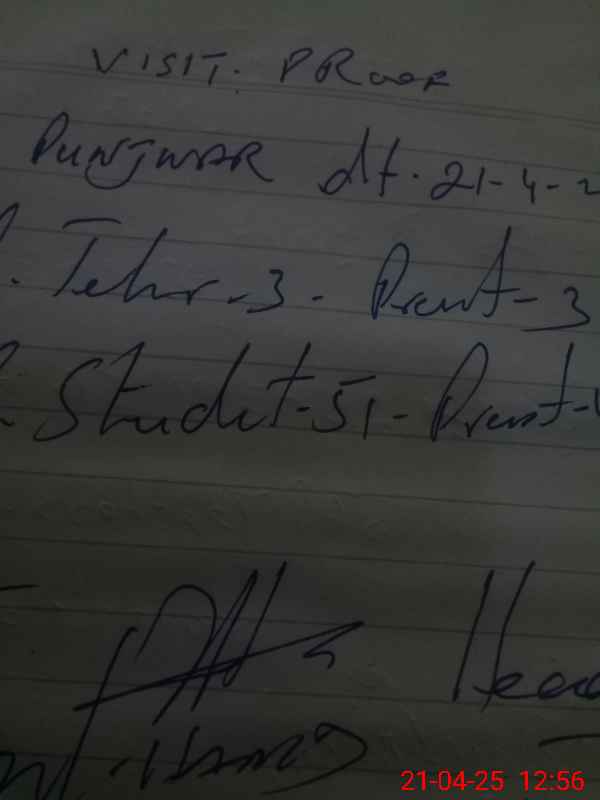 VISIT. PRoof
PUNJWAR dt. 21-4-2
. Tehr-3- Prent-3
Studet-51-Prenst-
Head
21-04-25 12:56